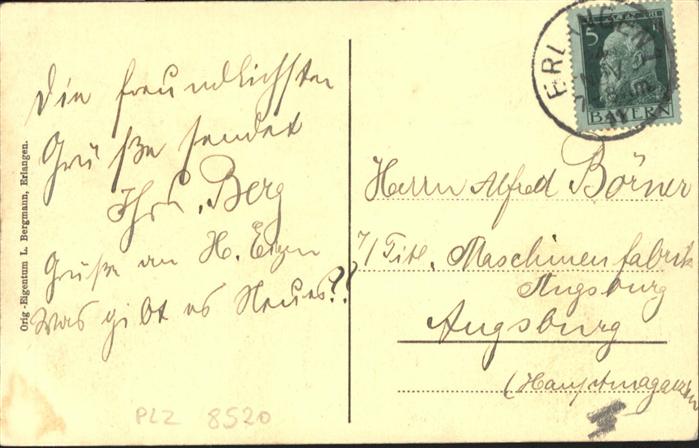 Die freundlichsten
Grüße sendet
Ihr Berg
Grüße an H.
Was gibt es Neues??
Orig.-Eigentum L. Bergmann, Erlangen.
ERLANGEN
5
BAYERN
Herrn Alfred Börner
Maschinenfabrik
Augsburg
Augsburg
(Hauptmagazin
PLZ 8520